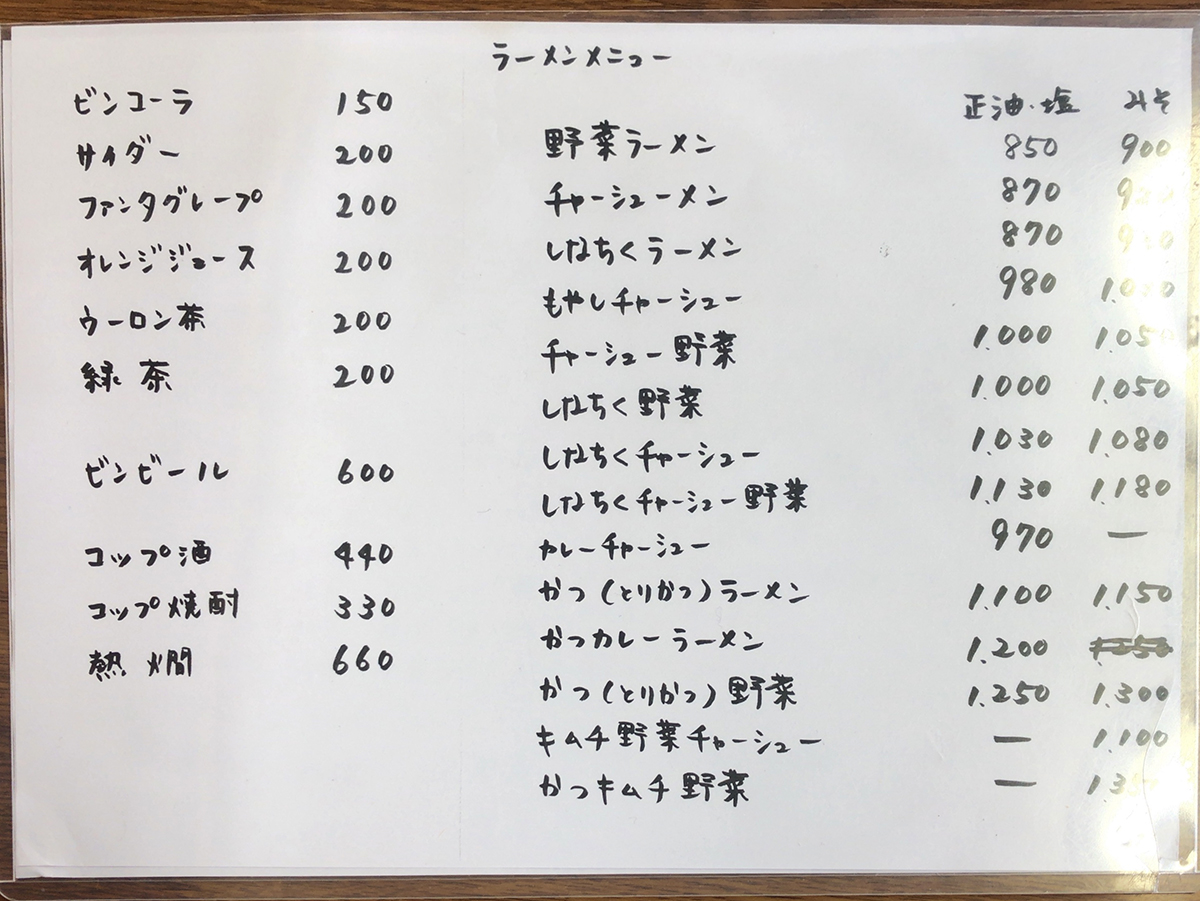 ラーメンメニュー
ビンコーラ 150
サイダー 200
ファンタグレープ 200
オレンジジュース 200
ウーロン茶 200
緑茶 200
ビンビール 600
コップ酒 440
コップ焼酎 330
熱燗 660
正油・塩 みそ
野菜ラーメン 850 900
チャーシューメン 870
しなちくラーメン 870
もやしチャーシュー 980
チャーシュー野菜 1.000 1.050
しなちく野菜 1.000 1.050
しなちくチャーシュー 1.030 1.080
しなちくチャーシュー野菜 1.130 1.180
カレーチャーシュー 970 ー
かつ(とりかつ)ラーメン 1.100 1.150
かつカレーラーメン 1.200
かつ(とりかつ)野菜 1.250 1.300
キムチ野菜チャーシュー ー 1.100
かつキムチ野菜 ー